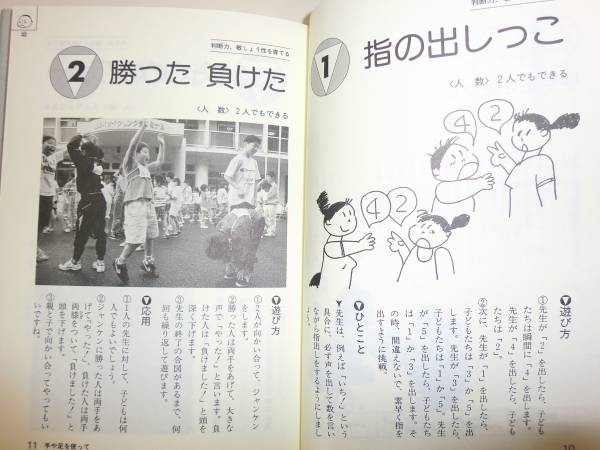 判断力、敏
1
指の出しっこ
〈人 数〉2人でもできる
4
2
4
2
▼遊び方
①先生が「2」を出したら、子ども
たちは瞬間に「4」を出します。
先生が「4」を出したら、子ども
たちは「2」。
②次に、先生が「1」を出したら、
子どもたちは「3」か「5」を出
します。先生が「3」を出したら、
子どもたちは「1」か「5」。先生
が「5」を出したら、子どもたち
は「1」か「3」を出します。そ
の時、間違えないで、素早く指を
出すように挑戦。
▼ひとこと
*先生は、例えば「いち!」という
具合に、必ず声を出して数を言い
ながら指出しをするようにしまし
10
判断力、敏しょう性を育てる
2
勝った 負けた
〈人 数〉2人でもできる
▼遊び方
①2人が向かい合って、ジャンケン
をします。
②勝った人は両手をあげて、大きな
声で「やったー」と言います。負
けた人は「負けました!」と頭を
深く下げます。
③先生の終了の合図があるまで、何
回も繰り返して遊びます。
▼応用
①1人の先生に対して、子どもは何
人でもよいでしょう。
②ジャンケンに勝った人は両手をあ
げて「やった!」、負けた人は両手
両膝をついて「負けました!」と
頭を下げます。
③親と子で向かい合ってやってもい
いですね。
11 手や足を使って